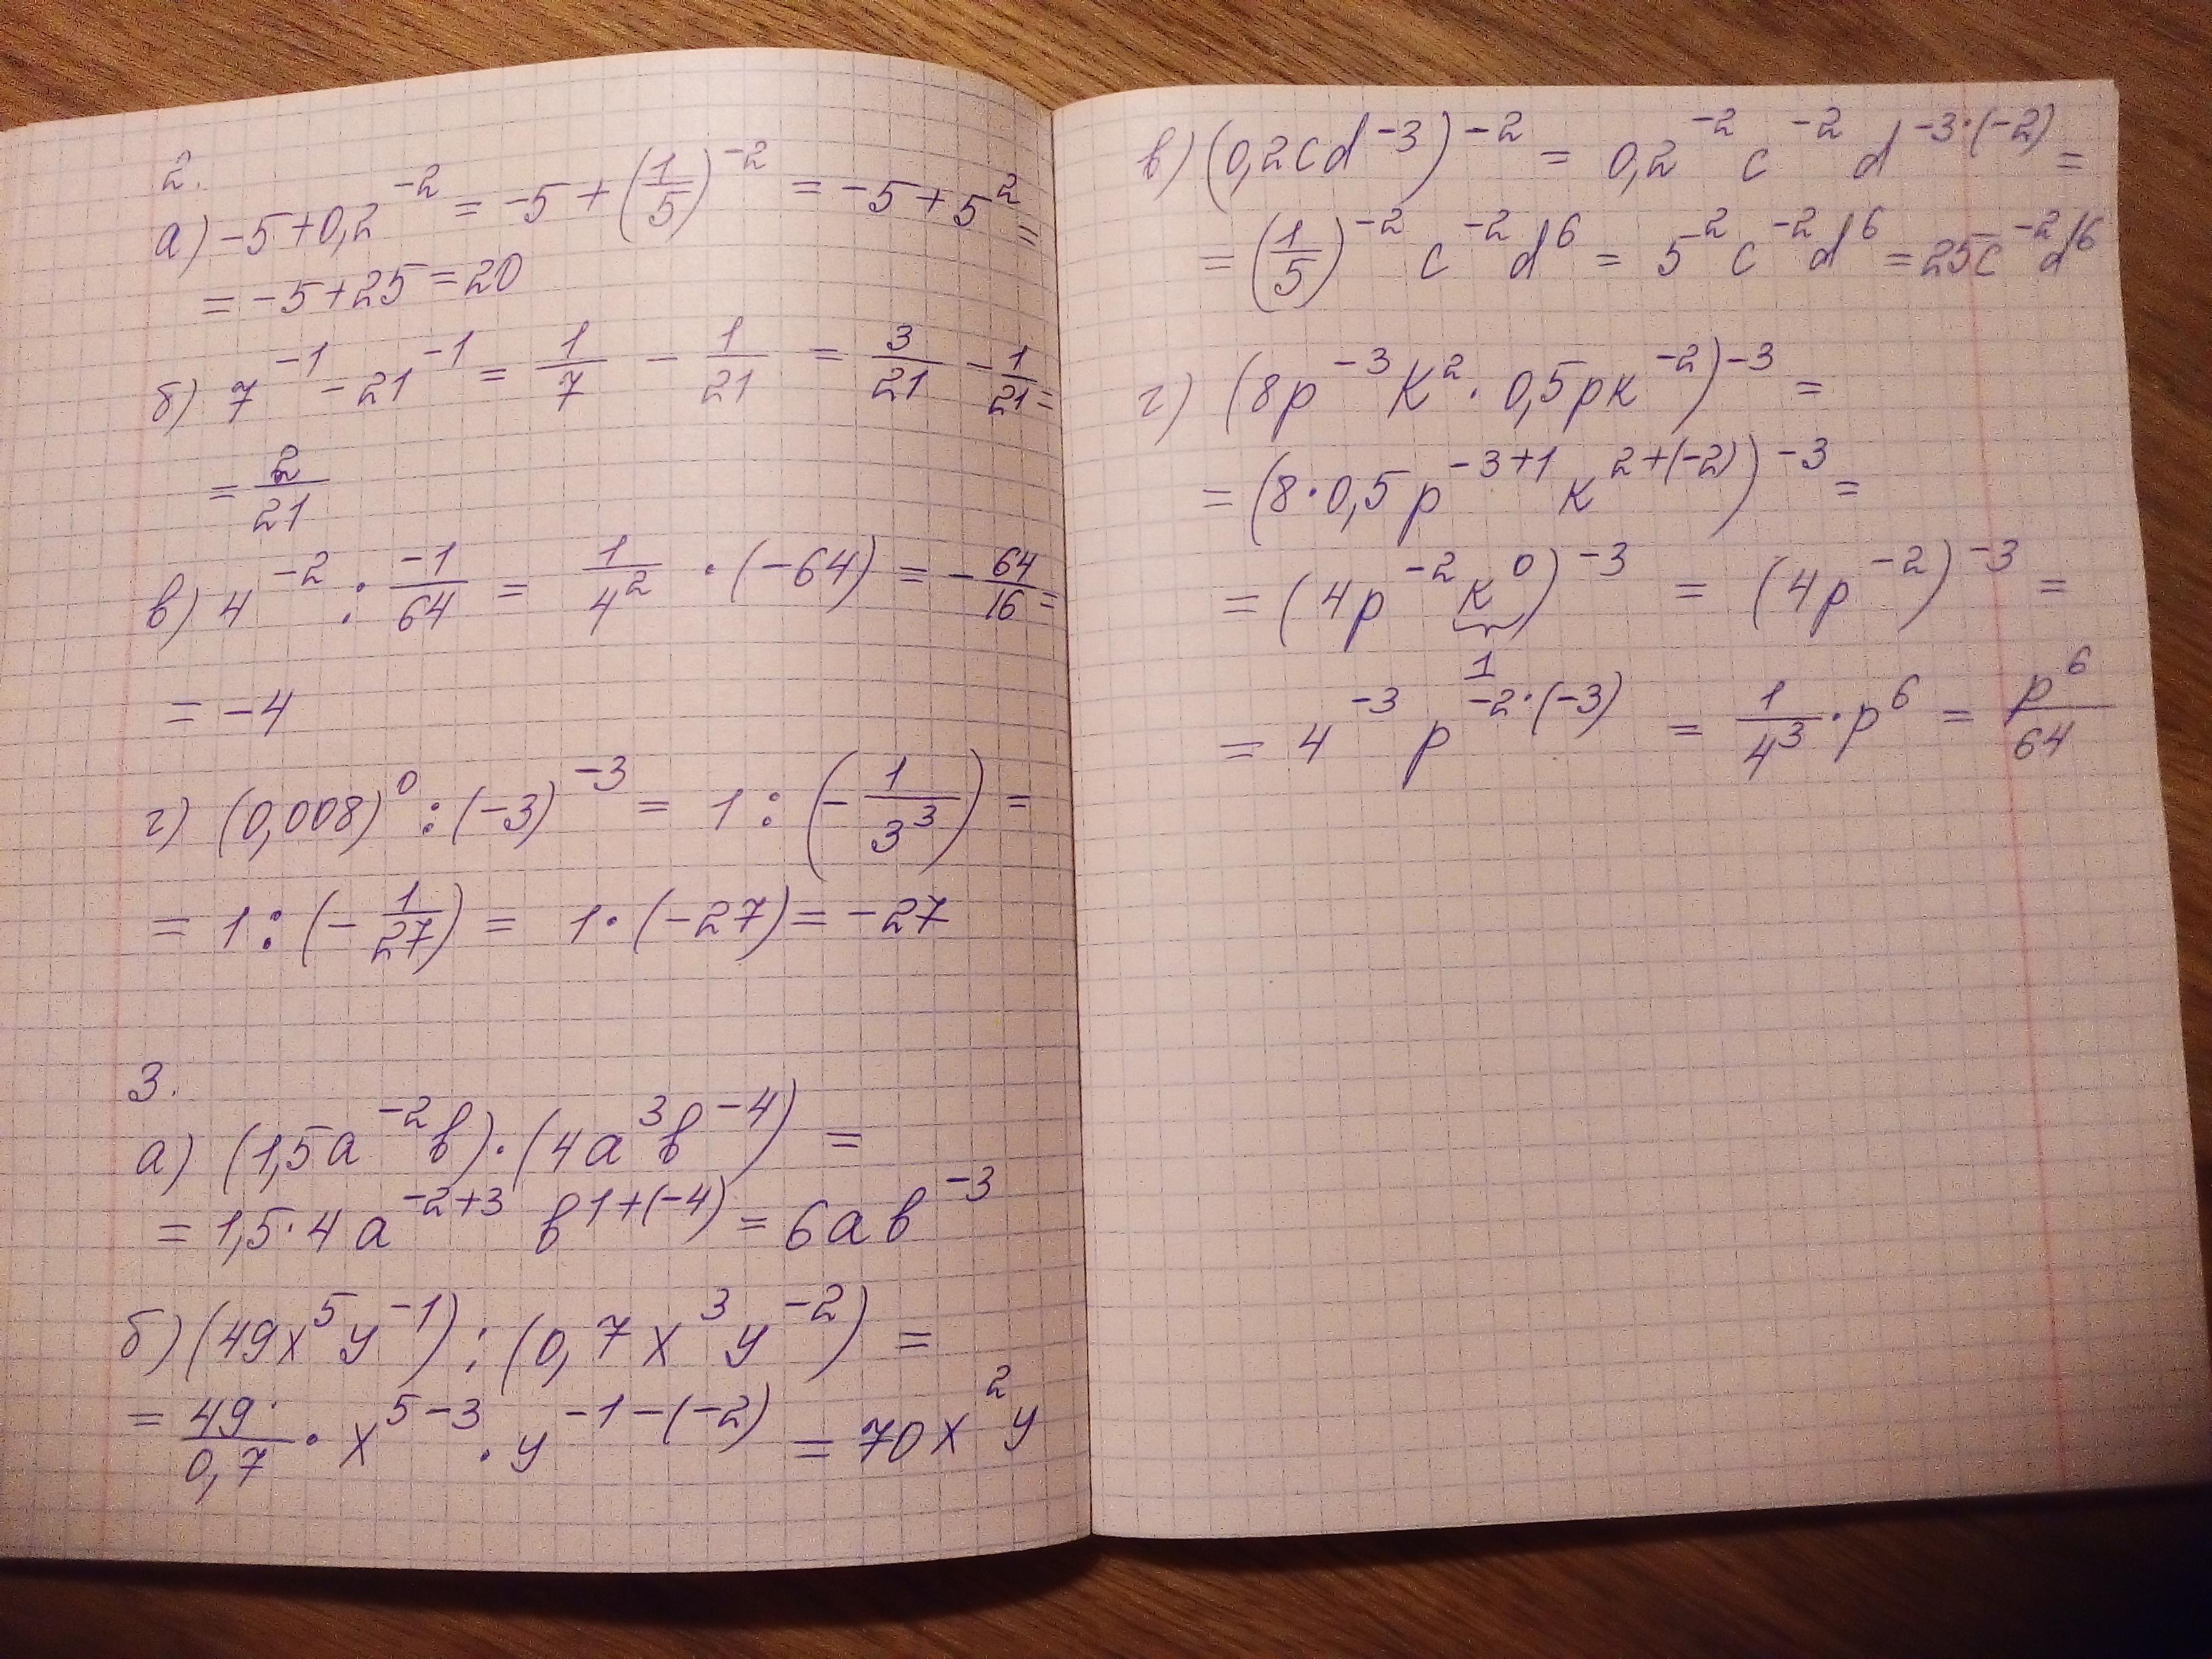 2.
а) -5+0,2^-2 = -5+(1/5)^-2 = -5+5^2 =
= -5+25=20
б) 7^-1 - 21^-1 = 1/7 - 1/21 = 3/21 - 1/21 =
= 2/21
в) 4^-2 : -1/64 = 1/4^2 · (-64) = -64/16 =
= -4
г) (0,008)^0 : (-3)^-3 = 1 : (-1/3^3) =
= 1 : (-1/27) = 1·(-27) = -27
3.
а) (1,5a^-2 b)·(4a^3 b^-4) =
= 1,5·4a^-2+3 b^1+(-4) = 6ab^-3
б) (49x^5 y^-1) : (0,7x^3 y^-2) =
= 49/0,7 · x^5-3 · y^-1-(-2) = 70x^2 y
в) (0,2cd^-3)^-2 = 0,2^-2 c^-2 d^-3·(-2) =
= (1/5)^-2 c^-2 d^6 = 5^2 c^-2 d^6 = 25c^-2 d^6
г) (8p^-3 k^2 · 0,5pk^-2)^-3 =
= (8·0,5p^-3+1 k^2+(-2))^-3 =
= (4p^-2 k^0)^-3 = (4p^-2)^-3 =
1
= 4^-3 p^-2·(-3) = 1/4^3 · p^6 = p^6/64